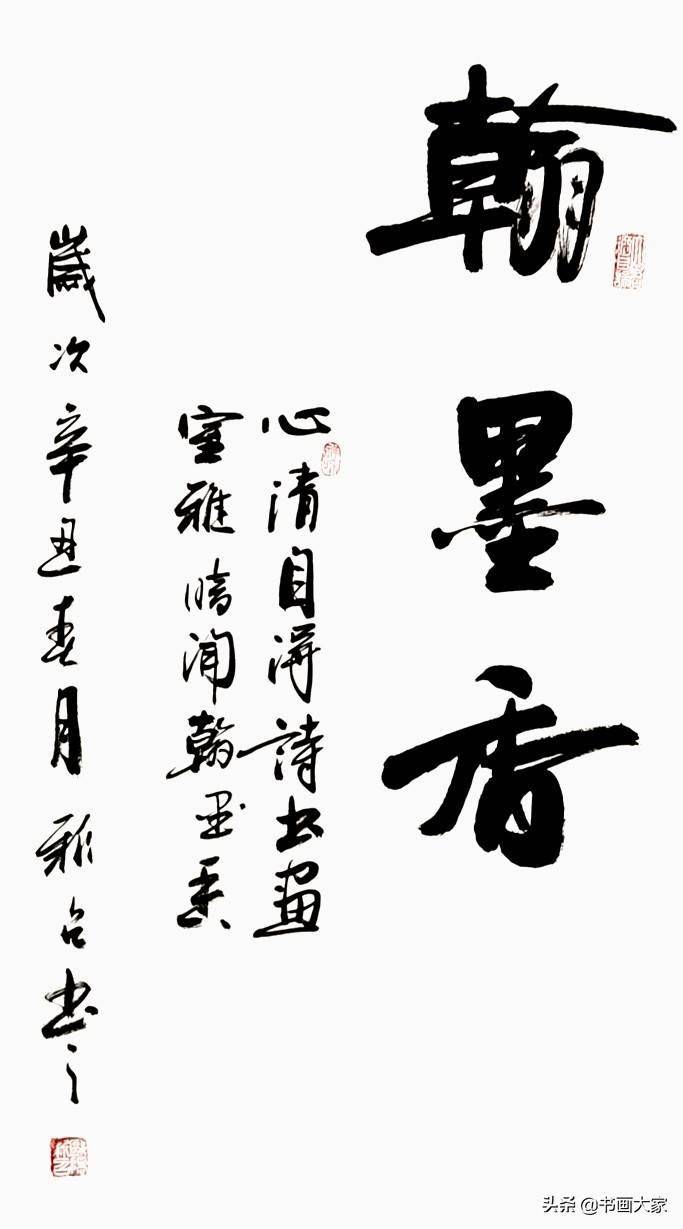 翰墨香
心清自得詩书畫
室雅時闻翰墨香
歲次辛丑春月雅书之
头条 @书画大家